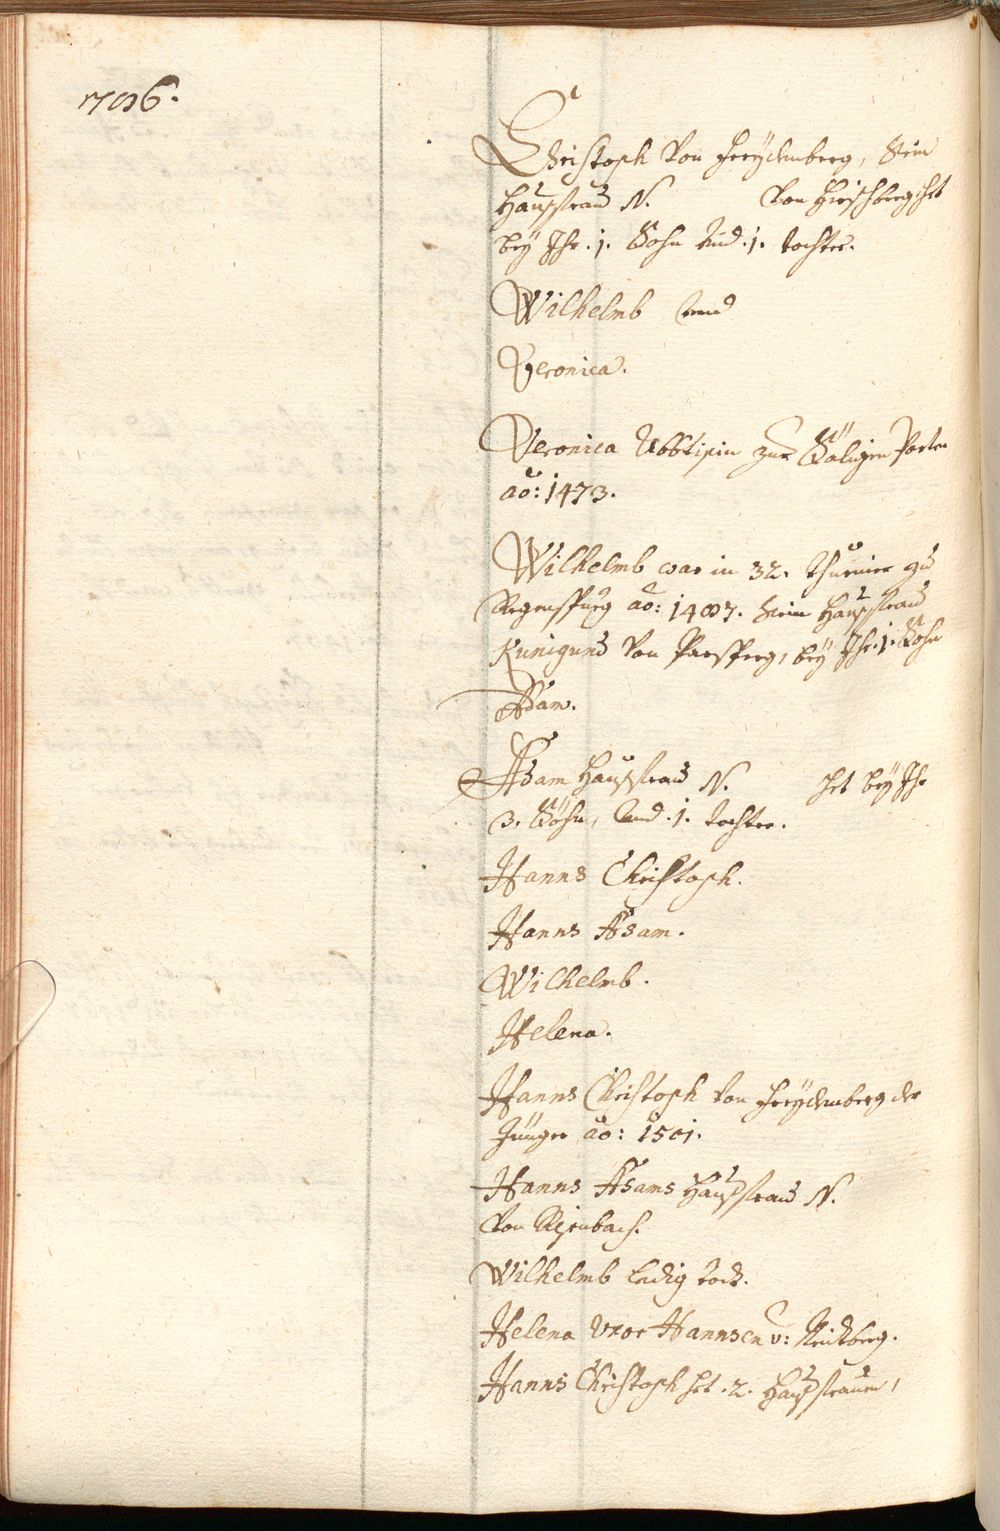 1706.
Christoph von Freydenberg, Sein
Haußfraw N. von Hirschberg, het
bey Ihr .1. Sohn vnd .1. tochter.
Wilhelmb vnd
Veronica.
Veronica Abbtißin zur Säligen Porten
ao: 1473.
Wilhelmb war in 32. Thurnier zu
Regenspurg ao: 1487. Sein Haußfraw
Kunigund von Parsperg, bey Ihr .1. Sohn
Adam.
Adam Haußfraw N. het bey Ihr
3. Söhn, vnd .1. tochter.
Hanns Christoph.
Hanns Adam.
Wilhelmb.
Helena.
Hanns Christoph von Freydenberg der
Jünger ao: 1501.
Hanns Adams Haußfraw N.
von
Wilhelmb ledig todt.
Helena Vxor Hannsen v:
Hanns Christoph het .2. Haußfrauen,